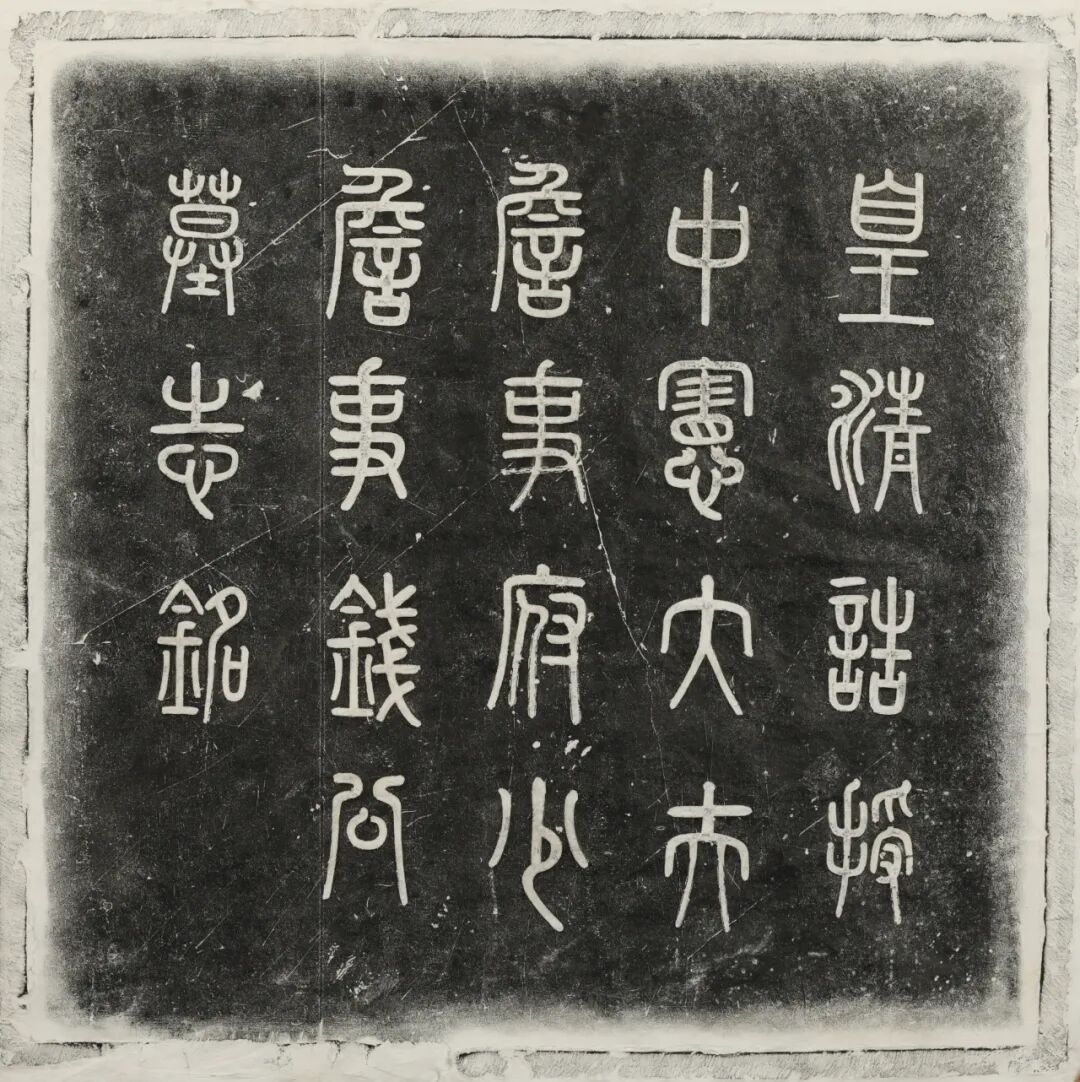 皇清誥授
中憲大夫
詹事府少
詹事錢公
墓志銘